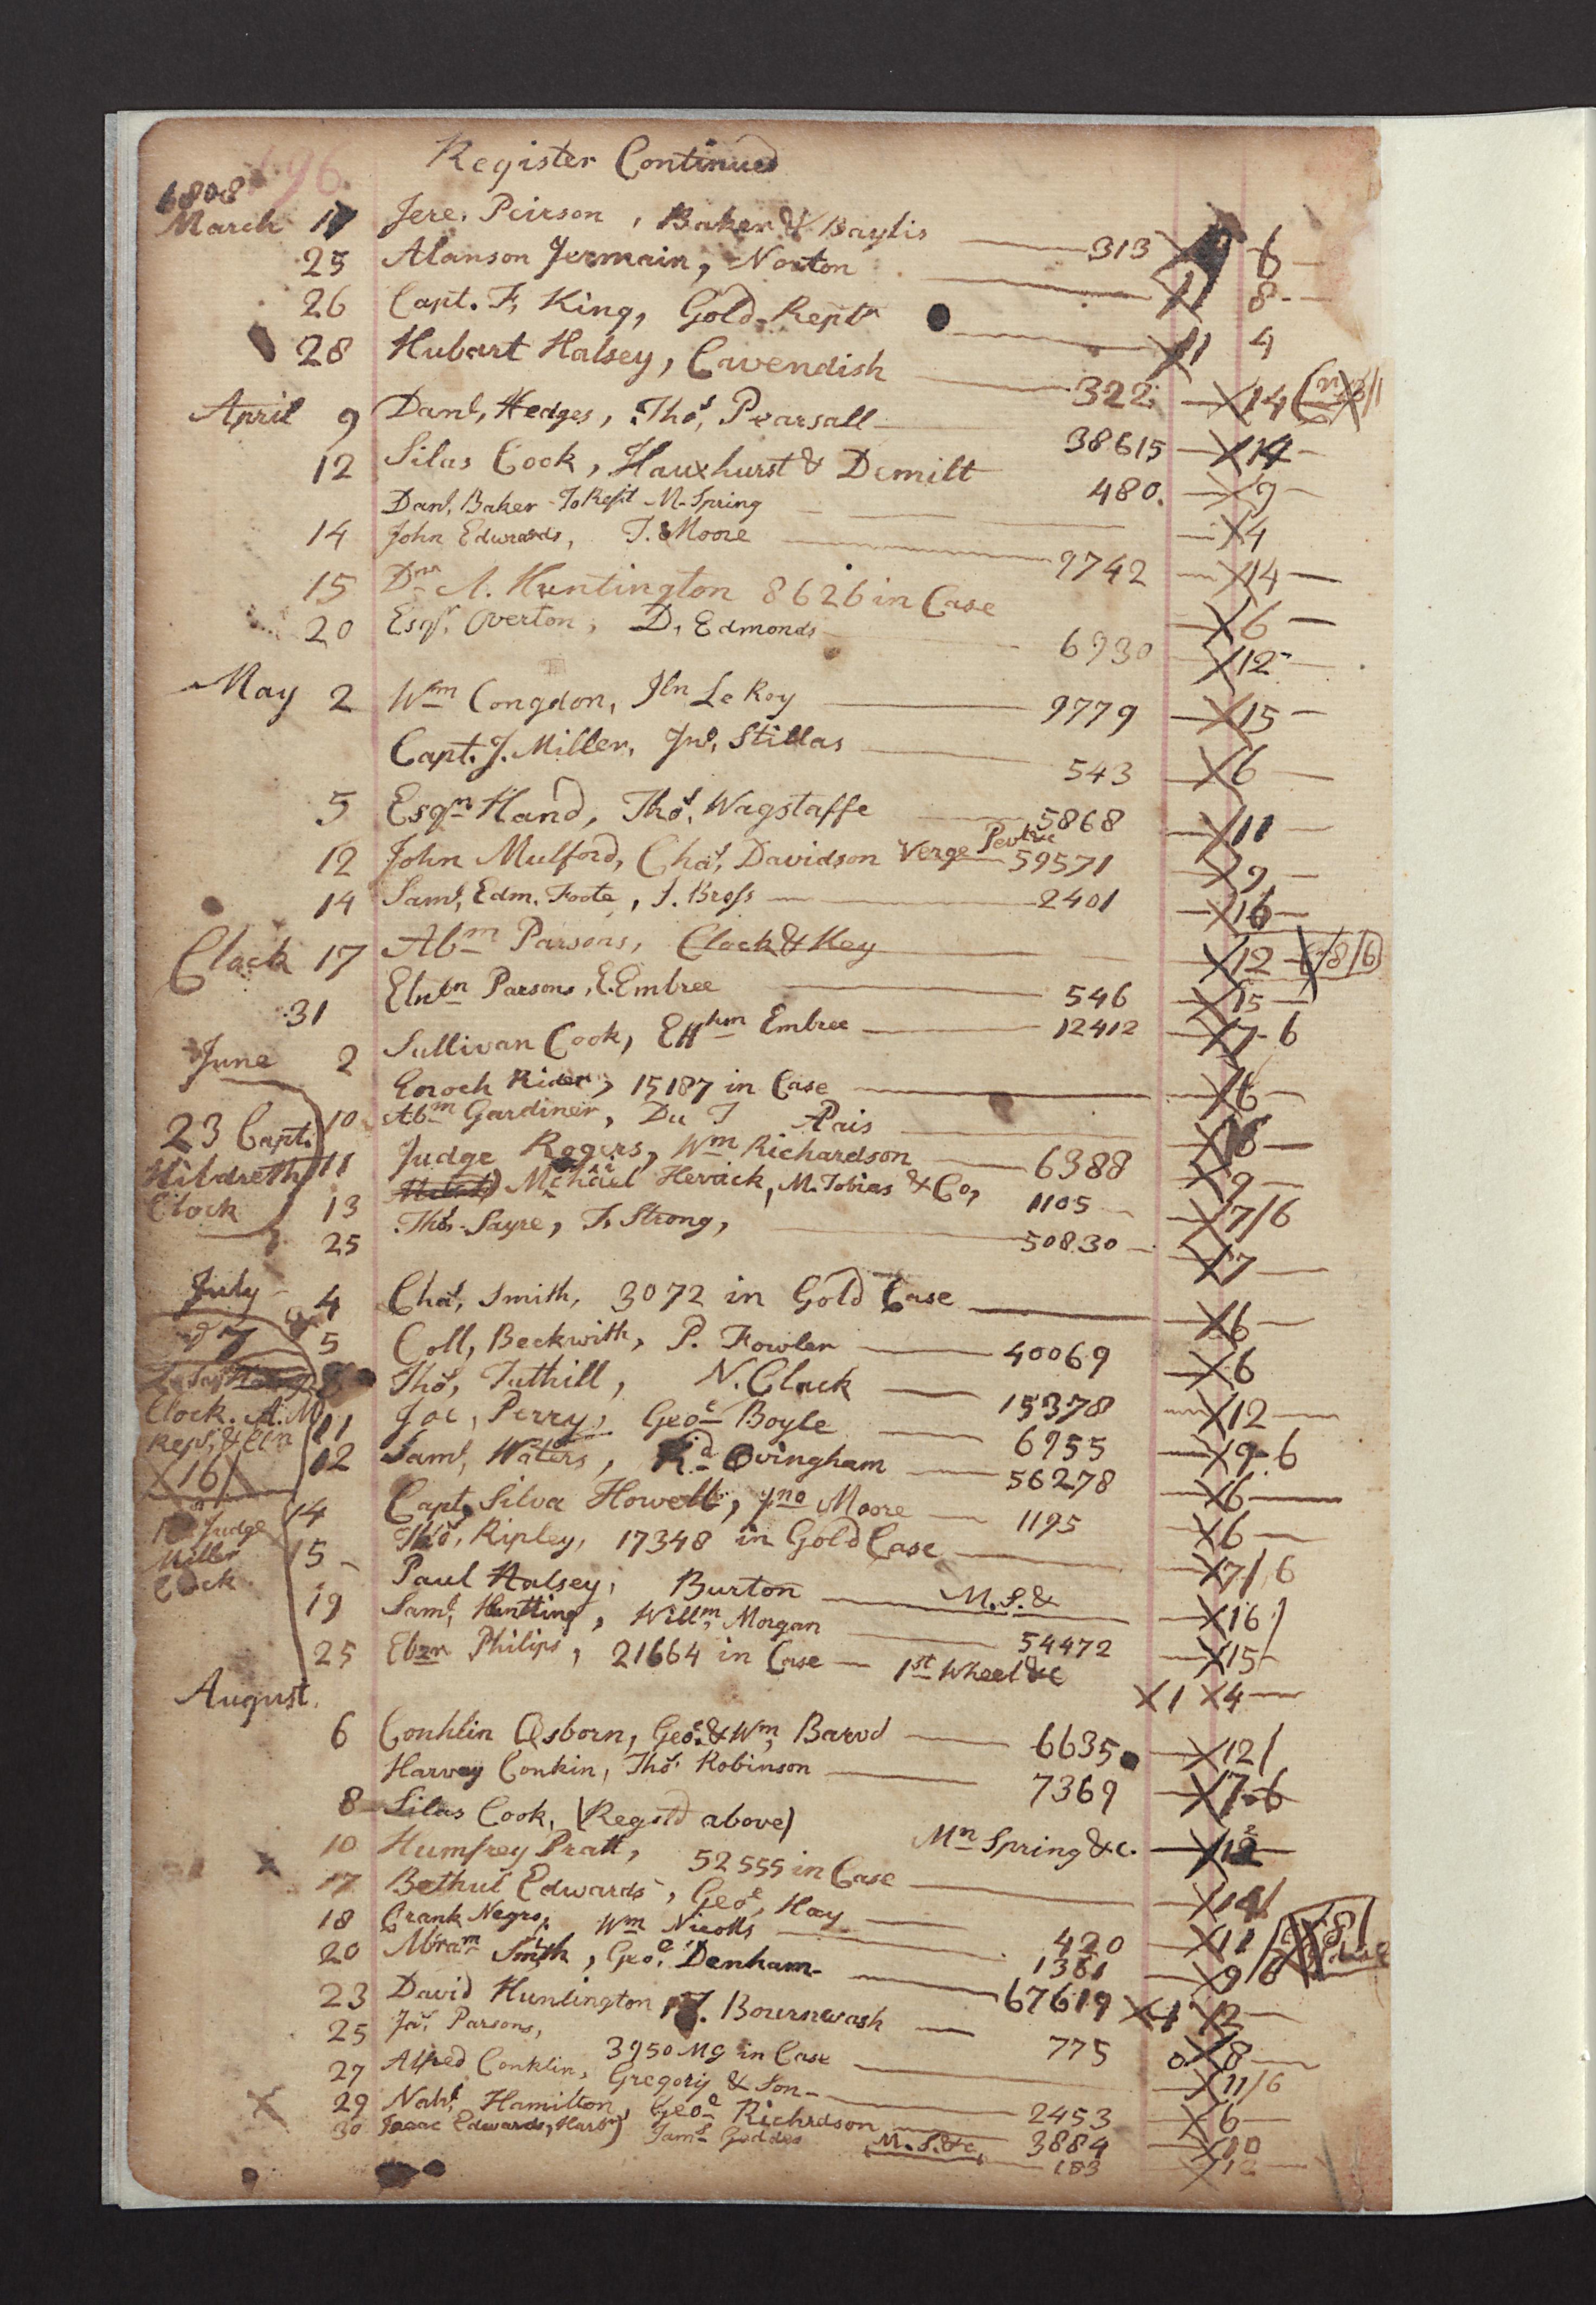 Register Continued
1808 196
March 17 Jere. Peirson, Baker & Baylis 313 6
25 Alanson Jermain, Norton 11 8
26 Capt. F. King, Gold Rept^r 11 4
28 Hubart Halsey, Cavendish 322 14
April 9 Danl, Hedges, Thos, Pearsall 38615 14
12 Silas Cook, Hauxhurst & Demilt 480. 9
Danl, Baker To Refit M. Spring 4
14 John Edwards, T. Moore 9742 14
15 D^r A. Huntington 8626 in Case 6
20 Esqr. Overton, D, Edmonds 6930 12
May 2 Wm Congdon, Jln Le Roy 9779 15
Capt. J. Miller, Jno, Stillas 543 6
5 Esqm Hand, Thos, Wagstaffe 5868 11
12 John Mulford, Chas, Davidson Verge 59571 9
14 Saml, Edm. Foote, J. Bross 2401 16
Clock 17 Abm Parsons, Clock & Key 12 8/6
Elnln Parsons, E. Embree 546 15
31 Sullivan Cook, Effhm Embree 12412 7-6
June 2 Enoch Rider, 15187 in Case 6
10 Abm Gardiner, Du T Pais 6
23 Capt.
Hildreth
Clock
11 Judge Rogers, Wm Richardson 6388 9
13 Michael Herrick, M. Tobias & Co, 1105 7/6
25 Thos. Sayre, T. Strong, 50830 7
July 4 Chas, Smith, 3072 in Gold Case 6
5 Coll, Beckwith, P. Fowler 40069 6
8 Thos, Tuthill, N. Clack 15378 12
7
Clock. A. M
Reps, & Cln
16
11 Joe, Perry, Geoe Boyle 6955 9-6
12 Saml, Waters, Rd Ovingham 56278 6
14 Capt, Silva Howell, Jno Moore 1195 6
Judge
Miller
Clock
15 Thos, Ripley, 17348 in Gold Case 7/6
Paul Halsey, Burton M. S. & 16/
19 Saml, Huntting, Willm, Morgan 54472 15
25 Ebzr Philips, 21664 in Case 1st Wheel &c 1 4
August.
6 Conklin Osborn, Geoe. & Wm, Barod 6635 12/
Harvey Conkin, Thos. Robinson 7369 7-6
8 Silas Cook, (Regstd above) Mn Spring &c. 12
10 Humfrey Pratt, 52555 in Case 14/
17 Bethul Edwards, Geoe, Hay 420 11
18 Crank Negro, Wm Nicolls 1361 9/6
20 Abram Smith, Geoe. Denham 67619 1 2
23 David Huntington, J. Bournwash 775 8
25 Jas. Parsons, 3950 Mg in Case 11/6
27 Alfred Conklin, Gregory & Son 2453 6
29 Nahl, Hamilton, Geoe Richrdson 3884 10
30 Isaac Edwards, Jams Geddes M. S. &c. 183 12